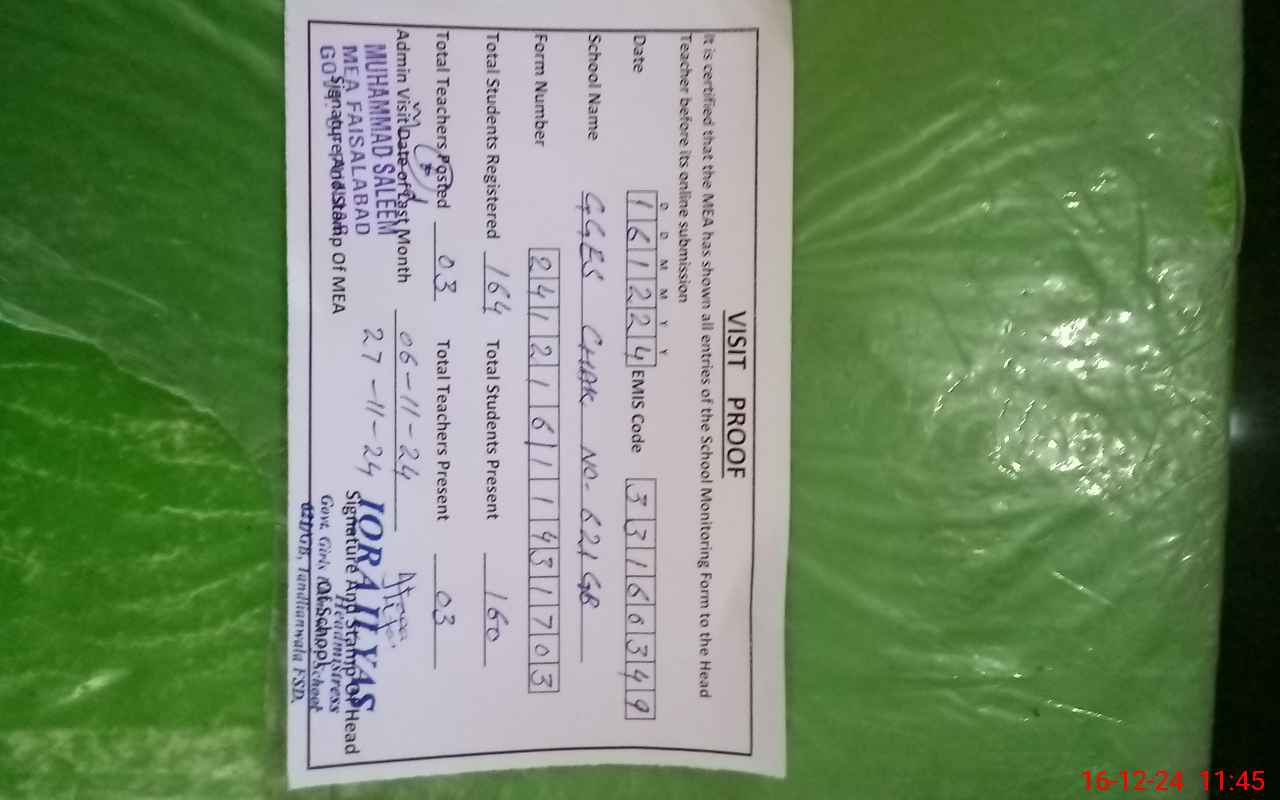 VISIT PROOF
It is certified that the MEA has shown all entries of the School Monitoring Form to the Head
Teacher before its online submission
D D M M Y Y
Date 161224 EMIS Code 33166349
School Name GGES CHAK NO- 621 GB
Form Number 24121611431703
Total Students Registered 164 Total Students Present 160
Total Teachers Posted 03 Total Teachers Present 03
Admin Visit Date of Last Month 06-11-24
27-11-24
MUHAMMAD SALEEM
MEA FAISALABAD
Signature And Stamp Of MEA
IQRA ILYAS
Headmistress
Signature And Stamp Of Head
Of School
Govt. Girls School
621/GB, Tandlianwala FSD.
16-12-24 11:45